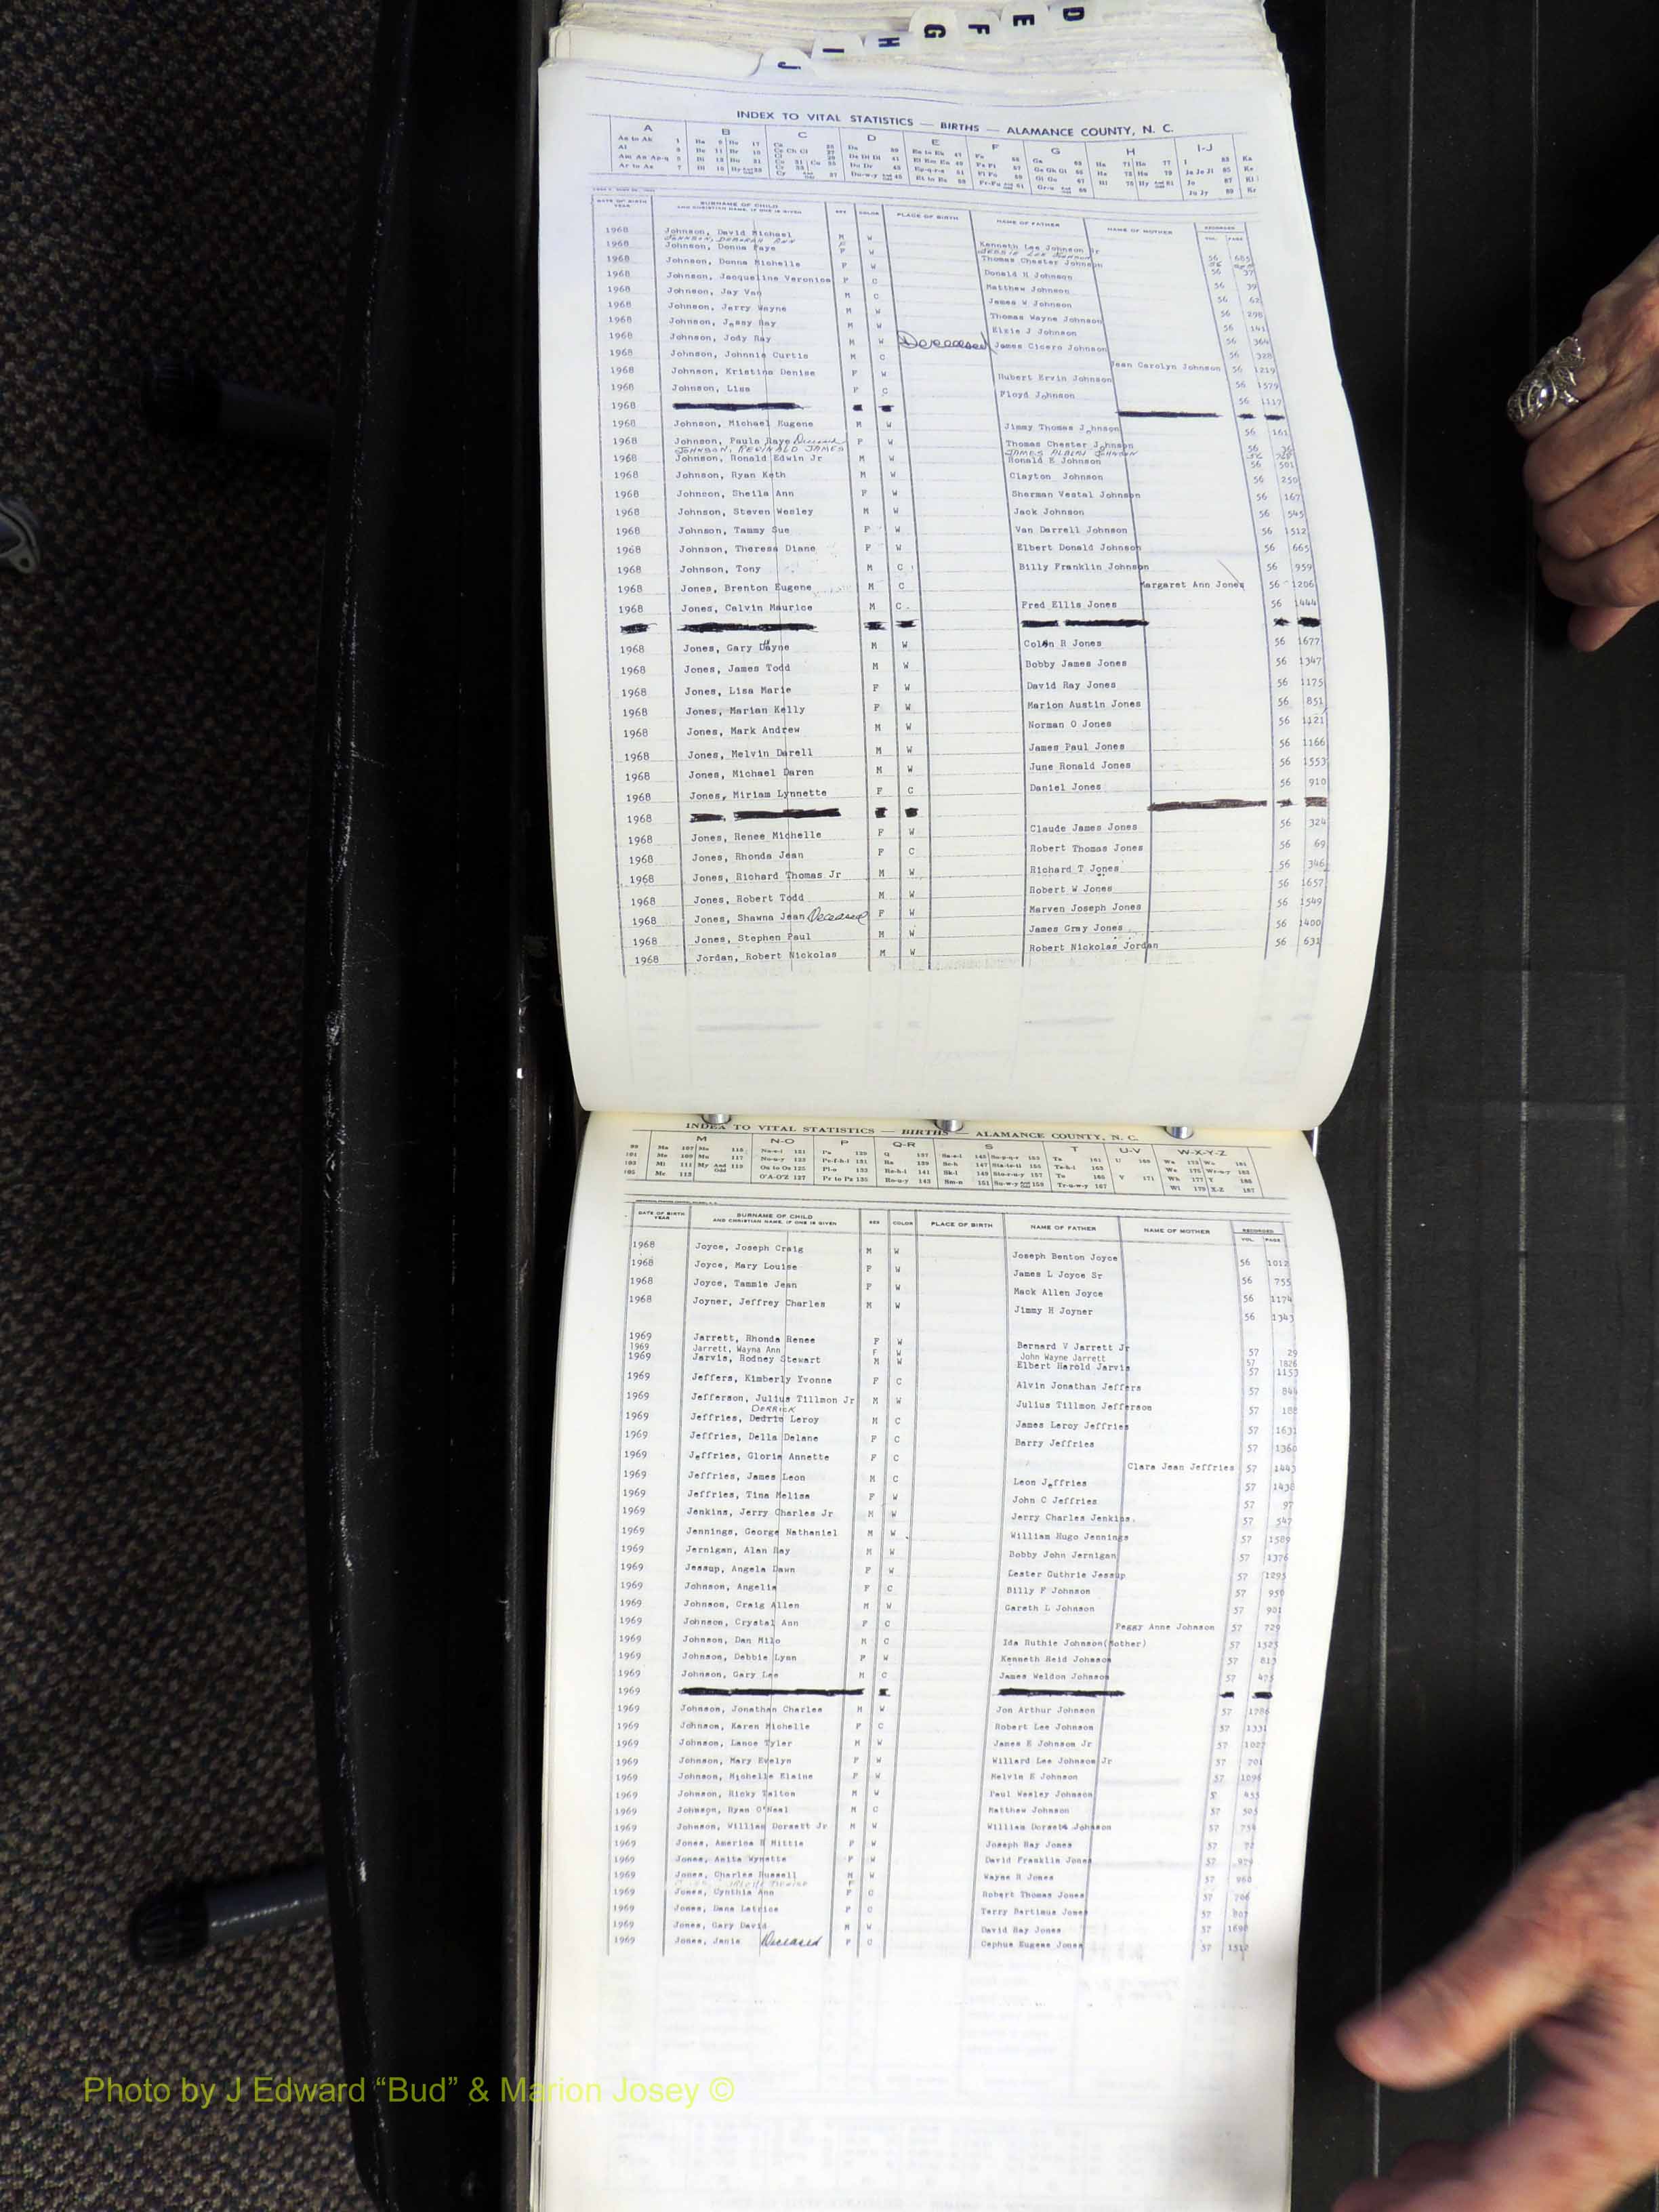 D
E
F
G
H
I
J
INDEX TO VITAL STATISTICS — BIRTHS — ALAMANCE COUNTY, N. C.
A B C D E F G H I-J
DATE OF BIRTH YEAR SURNAME OF CHILD AND CHRISTIAN NAME, IF ONE IS GIVEN SEX COLOR PLACE OF BIRTH NAME OF FATHER NAME OF MOTHER RECORDED VOL. PAGE
1968 Johnson, David Michael M W Kenneth Lee Johnson Jr 56 685
JOHNSON, DEBORAH ANN F
1968 Johnson, Donna Faye F W Thomas Chester Johnson 56 37
1968 Johnson, Donna Michelle F W Donald H Johnson 56 39
1968 Johnson, Jacqueline Veronica F C Matthew Johnson 56 62
1968 Johnson, Jay Van M C James W Johnson 56 298
1968 Johnson, Jerry Wayne M W Thomas Wayne Johnson 56 141
1968 Johnson, Jessy Ray M W Elsie J Johnson 56 364
1968 Johnson, Jody Ray M W Deceased James Cicero Johnson 56 328
1968 Johnson, Johnnie Curtis M C Jean Carolyn Johnson 56 1219
1968 Johnson, Kristina Denise F W Hubert Ervin Johnson 56 1579
1968 Johnson, Lisa F C Floyd Johnson 56 1117
1968
1968 Johnson, Michael Eugene M W Jimmy Thomas Johnson 56 161
1968 Johnson, Paula Raye Deceased F W Thomas Chester Johnson 56
JOHNSON, REGINALD JAMES JAMES ALBERT JOHNSON
1968 Johnson, Ronald Edwin Jr M W Ronald E Johnson 56 501
1968 Johnson, Ryan Keth M W Clayton Johnson 56 250
1968 Johnson, Sheila Ann F W Sherman Vestal Johnson 56 167
1968 Johnson, Steven Wesley M W Jack Johnson 56 545
1968 Johnson, Tammy Sue F W Van Darrell Johnson 56 1512
1968 Johnson, Theresa Diane F W Elbert Donald Johnson 56 665
1968 Johnson, Tony M C Billy Franklin Johnson 56 959
1968 Jones, Brenton Eugene M C Margaret Ann Jones 56 1206
1968 Jones, Calvin Maurice M C Fred Ellis Jones 56 1444
1968 Jones, Gary Dwayne M W Colon R Jones 56 1677
1968 Jones, James Todd M W Bobby James Jones 56 1347
1968 Jones, Lisa Marie F W David Ray Jones 56 1175
1968 Jones, Marian Kelly F W Marion Austin Jones 56 851
1968 Jones, Mark Andrew M W Norman O Jones 56 1121
1968 Jones, Melvin Darell M W James Paul Jones 56 1166
1968 Jones, Michael Daren M W June Ronald Jones 56 1553
1968 Jones, Miriam Lynnette F C Daniel Jones 56 910
1968
1968 Jones, Renee Michelle F W Claude James Jones 56 324
1968 Jones, Rhonda Jean F C Robert Thomas Jones 56 69
1968 Jones, Richard Thomas Jr M W Richard T Jones 56 346
1968 Jones, Robert Todd M W Robert W Jones 56 1657
1968 Jones, Shawna Jean Deceased F W Marven Joseph Jones 56 1549
1968 Jones, Stephen Paul M W James Gray Jones 56 1400
1968 Jordan, Robert Nickolas M W Robert Nickolas Jordan 56 631
INDEX TO VITAL STATISTICS — BIRTHS — ALAMANCE COUNTY, N. C.
M N-O P Q-R S T U-V W-X-Y-Z
DATE OF BIRTH YEAR SURNAME OF CHILD AND CHRISTIAN NAME, IF ONE IS GIVEN SEX COLOR PLACE OF BIRTH NAME OF FATHER NAME OF MOTHER RECORDED VOL. PAGE
1968 Joyce, Joseph Craig M W Joseph Benton Joyce 56 1012
1968 Joyce, Mary Louise F W James L Joyce Sr 56 755
1968 Joyce, Tammie Jean F W Mack Allen Joyce 56 1174
1968 Joyner, Jeffrey Charles M W Jimmy H Joyner 56 1343
1969 Jarrett, Rhonda Renee F W Bernard V Jarrett Jr 57 29
1969 Jarrett, Wayna Ann F W John Wayne Jarrett 57 1826
1969 Jarvis, Rodney Stewart M W Elbert Harold Jarvis 57 1153
1969 Jeffers, Kimberly Yvonne F C Alvin Jonathan Jeffers 57 844
1969 Jefferson, Julius Tillmon Jr M W Julius Tillmon Jefferson 57 188
DERRICK
1969 Jeffries, Dedric Leroy M C James Leroy Jeffries 57 1631
1969 Jeffries, Della Delane F C Barry Jeffries 57 1360
1969 Jeffries, Gloria Annette F C Clara Jean Jeffries 57 1443
1969 Jeffries, James Leon M C Leon Jeffries 57 1438
1969 Jeffries, Tina Melisa F W John C Jeffries 57 97
1969 Jenkins, Jerry Charles Jr M W Jerry Charles Jenkins 57 547
1969 Jennings, George Nathaniel M W William Hugo Jennings 57 1589
1969 Jernigan, Alan Ray M W Bobby John Jernigan 57 1376
1969 Jessup, Angela Dawn F W Lester Guthrie Jessup 57 1295
1969 Johnson, Angelia F C Billy F Johnson 57 950
1969 Johnson, Craig Allen M W Gareth L Johnson 57 901
1969 Johnson, Crystal Ann F C Peggy Anne Johnson 57 729
1969 Johnson, Dan Milo M C Ida Ruthie Johnson(Mother) 57 1523
1969 Johnson, Debbie Lynn F W Kenneth Reid Johnson 57 813
1969 Johnson, Gary Lee M C James Weldon Johnson 57 475
1969
1969 Johnson, Jonathan Charles M W Jon Arthur Johnson 57 1786
1969 Johnson, Karen Michelle F C Robert Lee Johnson 57 1331
1969 Johnson, Lance Tyler M W James E Johnson Jr 57 1027
1969 Johnson, Mary Evelyn F W Willard Lee Johnson Jr 57 701
1969 Johnson, Michelle Elaine F W Melvin E Johnson 57 1096
1969 Johnson, Ricky Talton M W Paul Wesley Johnson 5 455
1969 Johnson, Ryan O'Neal M C Matthew Johnson 57 505
1969 Johnson, William Dorsett Jr M W William Dorsett Johnson 57 754
1969 Jones, America R Mittie F W Joseph Ray Jones 57 72
1969 Jones, Anita Wynette F W David Franklin Jones 57 929
1969 Jones, Charles Russell M W Wayne R Jones 57 960
1969 Jones, Cynthia Ann F C Robert Thomas Jones 57 706
1969 Jones, Dana Latrice F C Terry Bertimus Jones 57 807
1969 Jones, Gary David M W David Ray Jones 57 1690
1969 Jones, Janie Deceased F C Cephus Eugene Jones 57 1312
Photo by J Edward “Bud” & Marion Josey ©